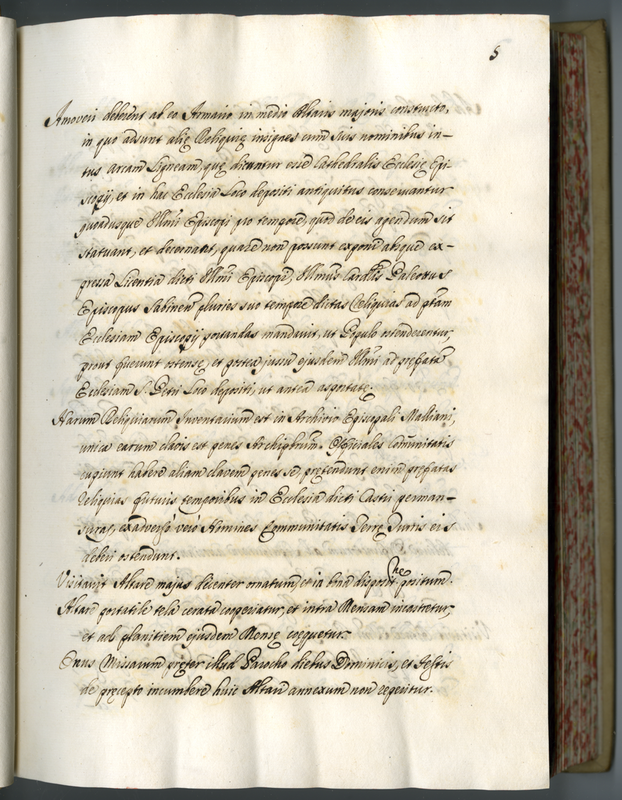 5
Amoveri deberent ab eo Armario in medio Altaris majoris constructo,
in quo adsunt alię Reliquię insignes cum suis nominibus in-
tus Arcam Ligneam, quę dicuntur esse Cathedralis Ecclesię Epi-
scopij, et in hac Ecclesia Loco depositi antiquitus conservantur
quousque Illmi Episcopi pro tempore, quid de eis agendum sit
statuant, et decernant, quare non possunt exponi absque ex-
pressa Licentia dicti Illmi Episcopi, Illmus Cardlis Paleottus
Episcopus Sabinen pluries suo tempore dictas Reliquias ad ptam
Ecclesiam Episcopij portandas mandavit, ut Populo ostenderentur,
prout fuerunt ostensę, et postea jussu ejusdem Illmi ad prefata
Ecclesiam S. Petri Loco depositi, ut antea asportatę.
Harum Reliquiarum Inventarium est in Archivio Episcopali Malliani,
unica earum clavis est penes Archiprbrum. Officiales Comunitatis
cupiunt habere aliam clavem penes se prętendunt enim pręfatas
Reliquias futuris temporibus in Ecclesia dicti Castri perman-
suras, ex adverso vero Homines Communitatis Terrę Turris eis
deberi ostendunt.
Visitavit Altare majus decenter ornatum, et in bna dispositne positum.
Altare portatile tela cerata cooperiatur, et intra Mensam incastretur,
et ad planitiem ejusdem Mensę coęquetur.
Onus Missarum pręter illud Parocho diebus Dominicis, et Festis
de pręcepto incumbere huic Altari annexum non reperitur.